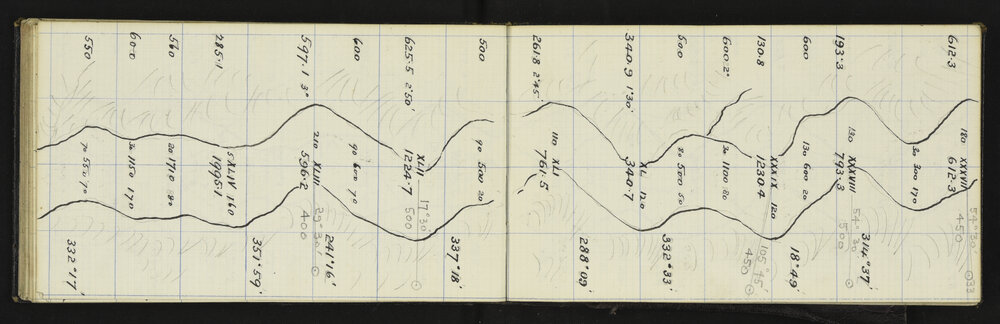 54°30'
612.3 180 XXXVII
612.3 450
30 300 170
314°37'
54°30'
193.3 130 XXXVIII
793.3 500
600 130 600 20
18°49'
130.8 XXXIX 120
1230.4 105°45'
450
600.2° 30 1100 80
500 80 500 50
332°33'
340.9 1°30' XL 120
340.7
288°09'
2618 2°45' 110 XLI
761.5
500 90 500 20
337°18'
17°30'
625.5 2°50' XLII
1224.7 500
600 90 600 70
241°16'
210 XLIII
597.1 3° 596.2
400
351°59'
285.1 XLIV 160
1995.1
560 20 1710 80
600 30 1150 170
550 70 550 70
332°17'